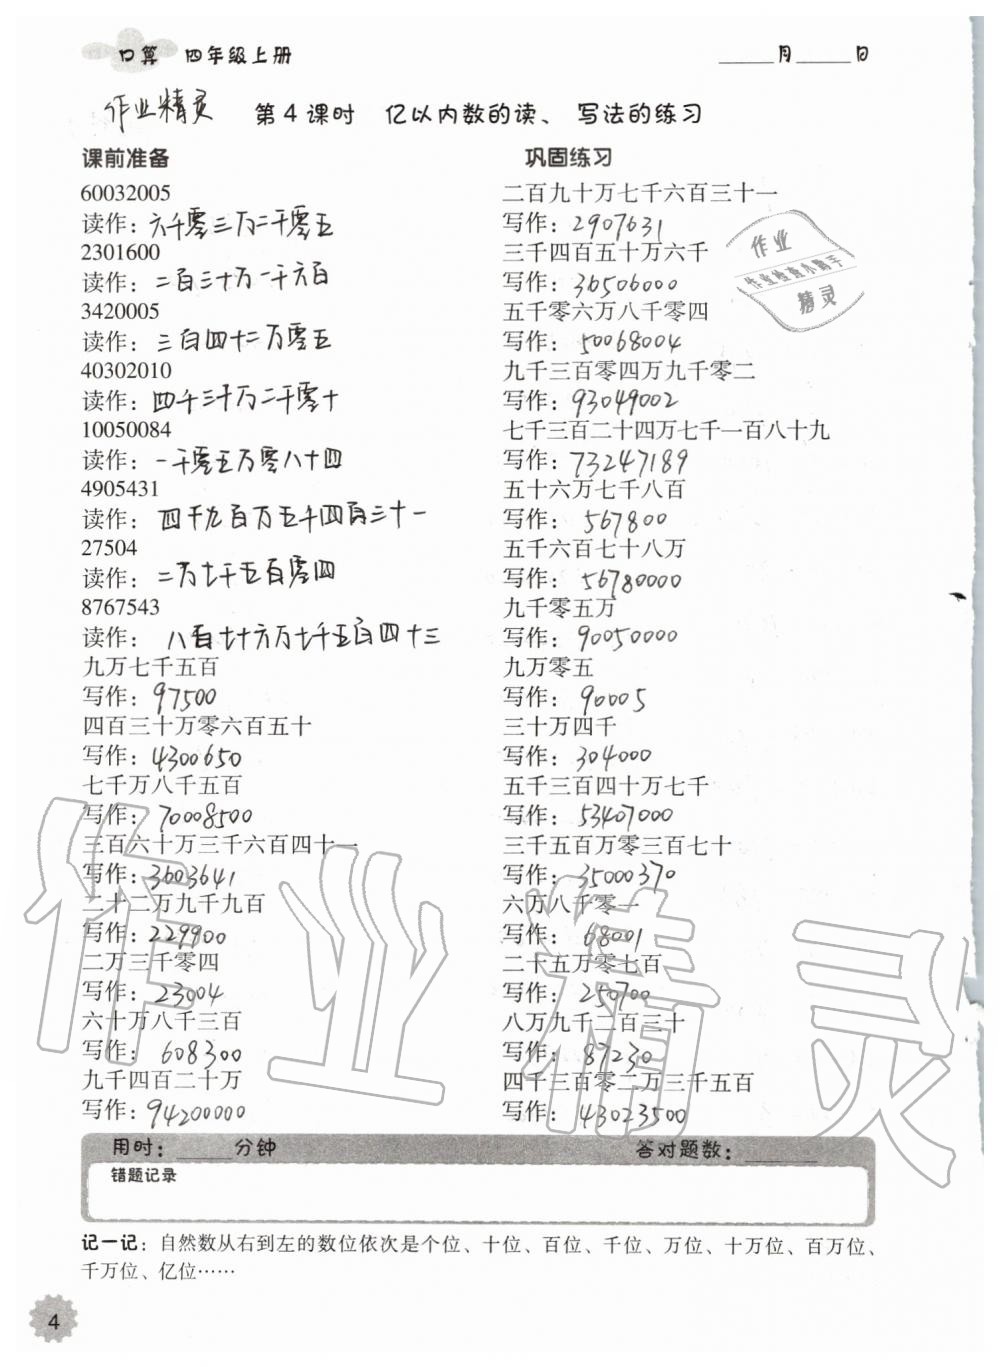 口算 四年级上册
月 日
作业精灵 第4课时 亿以内数的读、写法的练习
课前准备
60032005
读作：六千零三万二千零五
2301600
读作：二百三十万一千六百
3420005
读作：三百四十二万零五
40302010
读作：四千三十万二千零十
10050084
读作：一千零五万零八十四
4905431
读作：四千九百万五千四百三十一
27504
读作：二万七千五百零四
8767543
读作：八百七十六万七千五百四十三
九万七千五百
写作：97500
四百三十万零六百五十
写作：4300650
七千万八千五百
写作：70008500
三百六十万三千六百四十一
写作：3603641
二十二万九千九百
写作：229900
二万三千零四
写作：23004
六十万八千三百
写作：608300
九千四百二十万
写作：94200000
巩固练习
二百九十万七千六百三十一
写作：2907631
三千四百五十万六千
写作：36506000
五千零六万八千零四
写作：50068004
九千三百零四万九千零二
写作：93049002
七千三百二十四万七千一百八十九
写作：73247189
五十六万七千八百
写作：567800
五千六百七十八万
写作：56780000
九千零五万
写作：90050000
九万零五
写作：90005
三十万四千
写作：304000
五千三百四十万七千
写作：53407000
三千五百万零三百七十
写作：35000370
六万八千零一
写作：68001
二十五万零七百
写作：250700
八万九千二百三十
写作：87230
四千三百零二万三千五百
写作：43023500
作业
作业检查小助手
精灵
作业精灵
用时： 分钟 答对题数：
错题记录
记一记：自然数从右到左的数位依次是个位、十位、百位、千位、万位、十万位、百万位、
千万位、亿位……
4